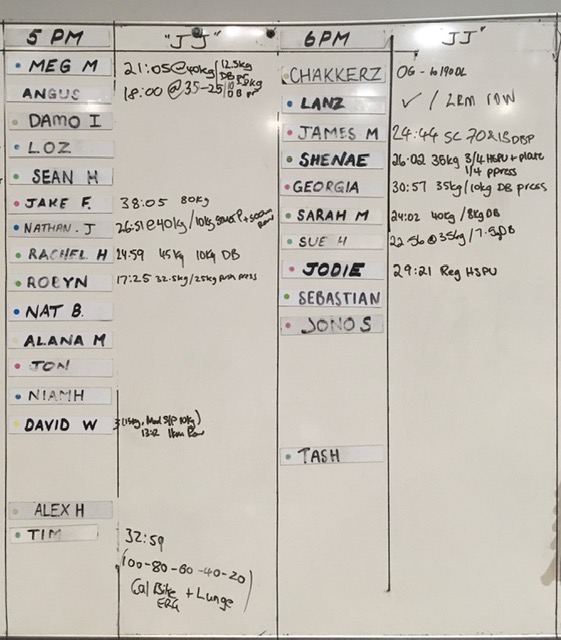 5 PM "JJ"
MEG M 21:05@40kg/12.5kg DB pr
ANGUS 18:00 @35-25/10
DB pr
DAMO I
LOZ
SEAN H
JAKE F. 38:05 80kg
NATHAN.J 26:51@40kg/10kg
RACHEL H 24:59 45kg 10kg DB
ROBYN 17:25 32.5kg/25kg push press
NAT B.
ALANA M
TON
NIAMH
DAVID W
1km Row
ALEX H
TIM 32:59
(100-80-60-40-20)
Cal Bike + Lunge
ERG
6PM JJ"
CHAKKERZ OG -
LANZ ✓ / 2KM ROW
JAMES M 24:44 SC 70&15DBP
SHENAE 26.02 35kg 3/4 HSPU + plate
1/4 ppress
GEORGIA 30:57 35kg/10kg DB press
SARAH M 24:02 40kg/8kg DB
SUE H 22:56@35kg/7.5gDB
JODIE 29:21 Reg HSPU
SEBASTIAN
JONO S
TASH